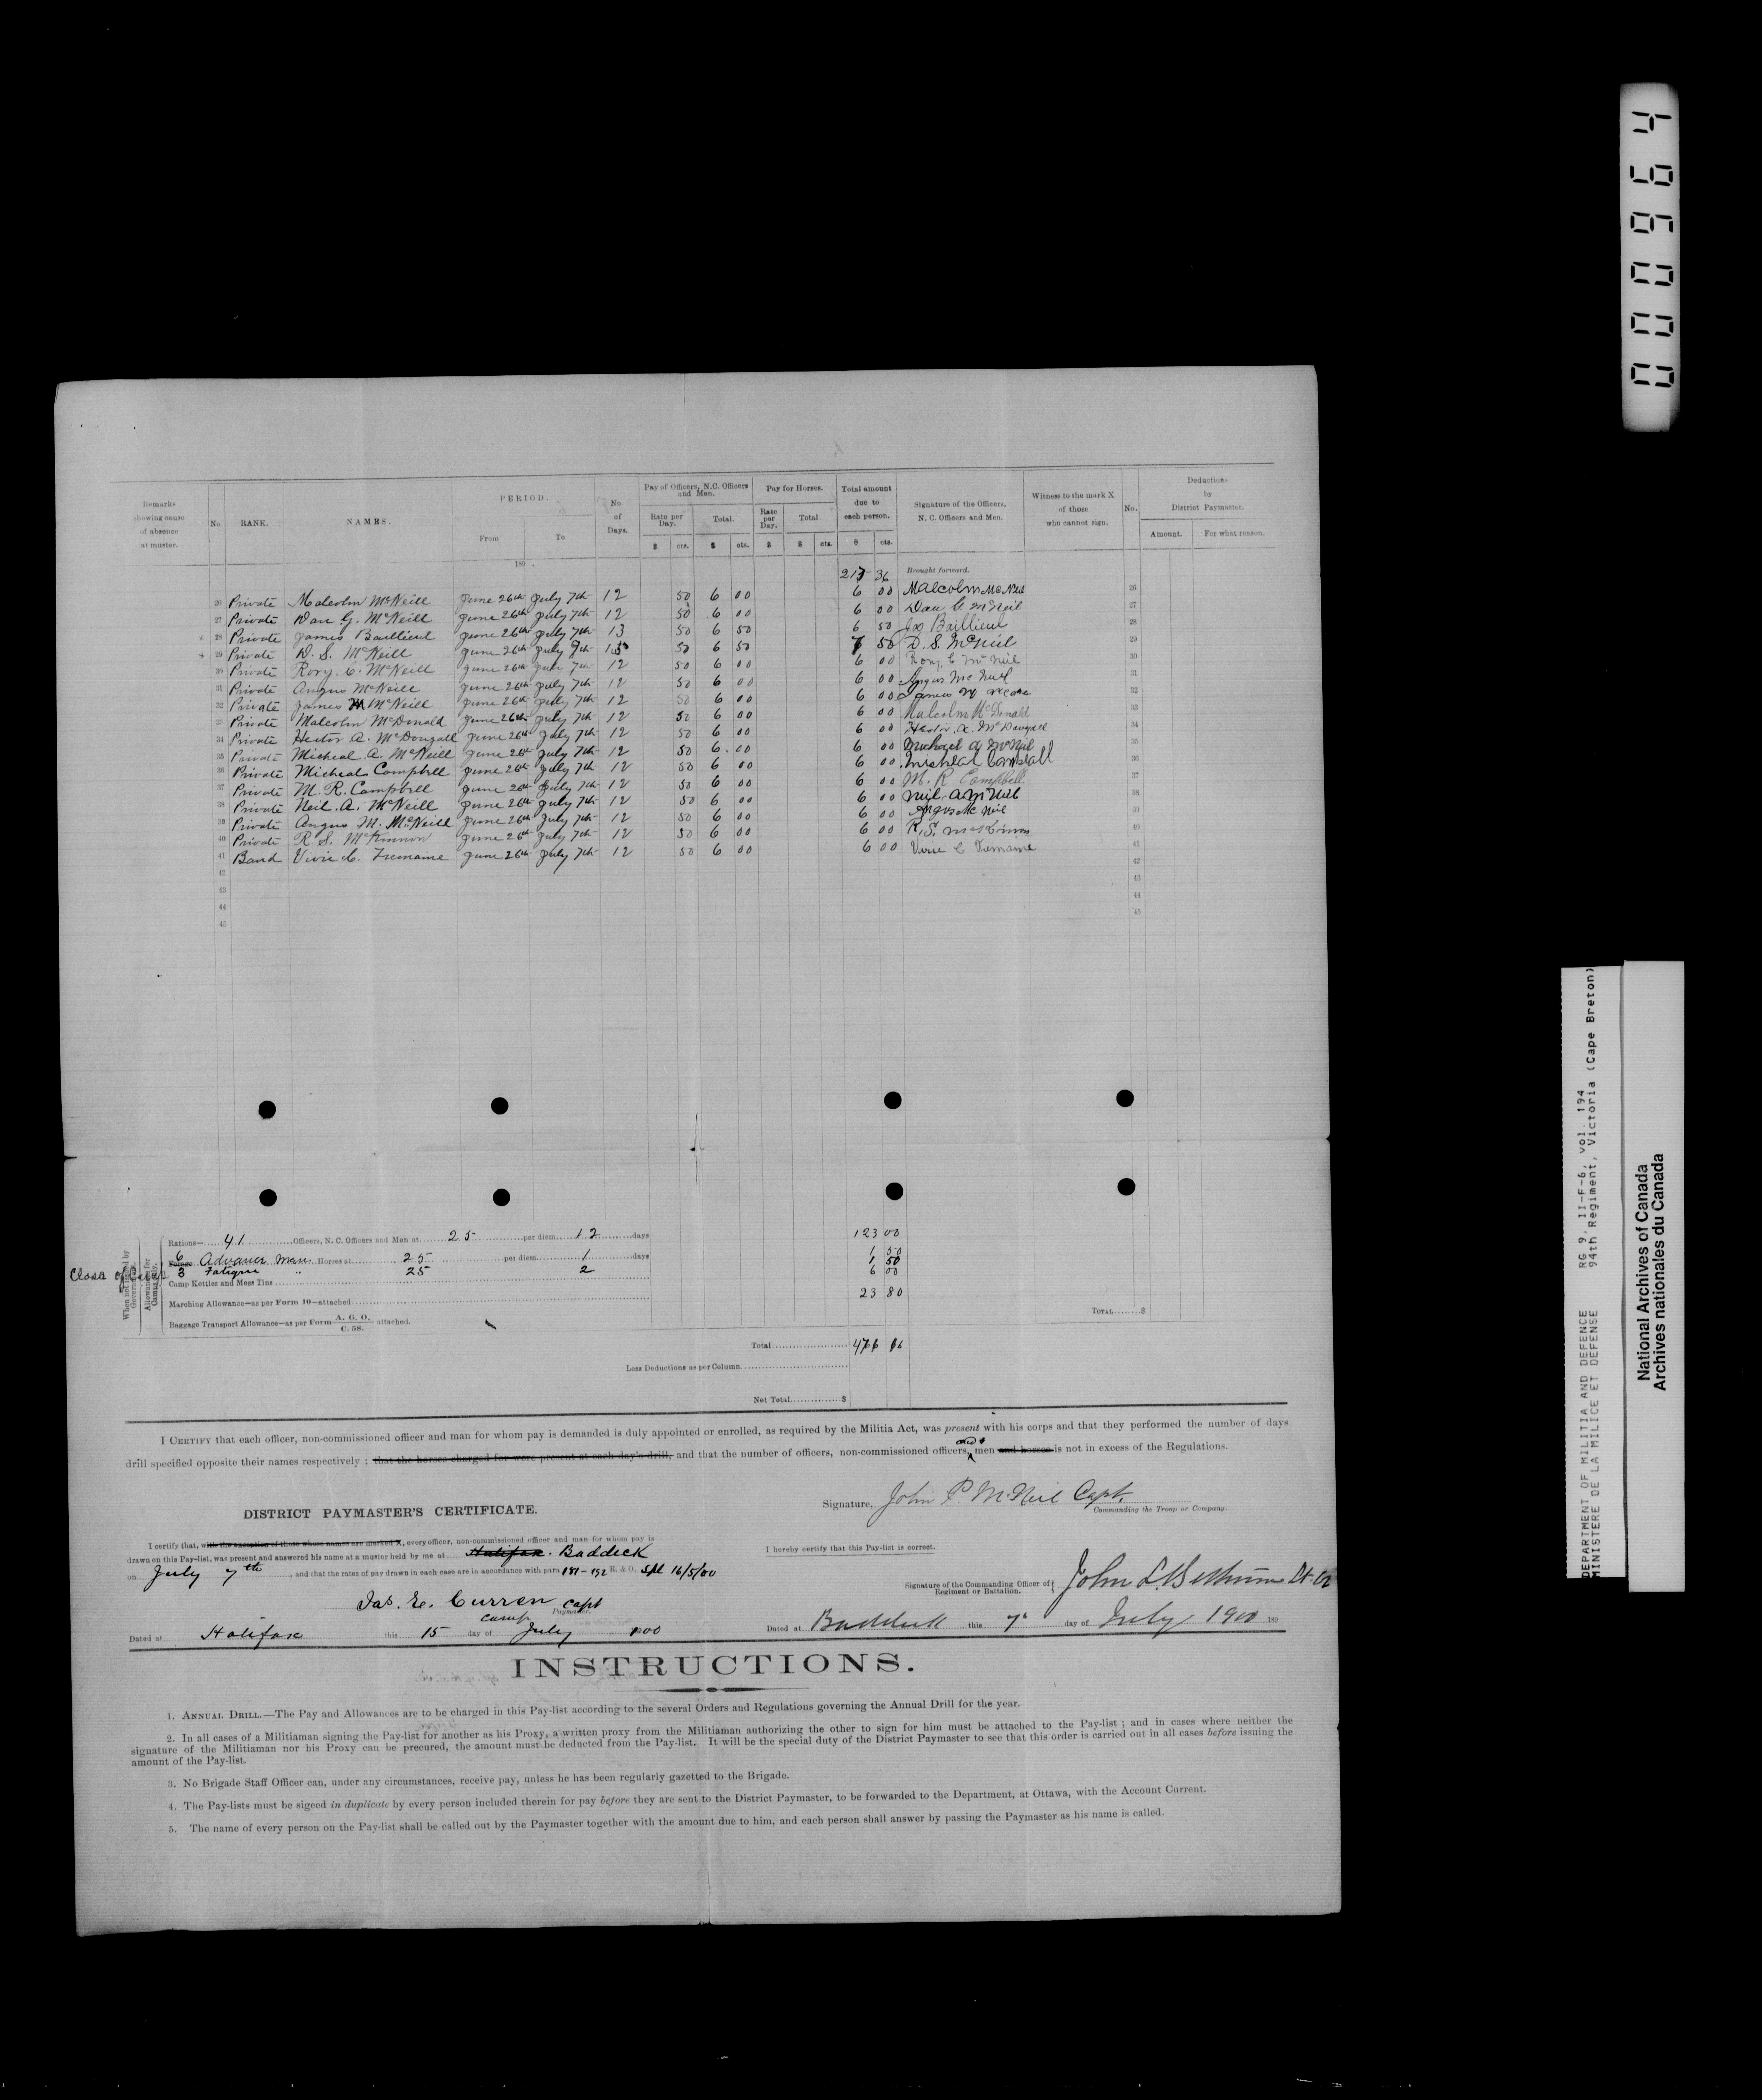 Remarks showing cause of absence at muster. No. RANK. NAMES. PERIOD. From To No of Days. Pay of Officers, N.C. Officers and Men. Rate per Day. $ cts. Total. $ cts. Pay for Horses. Rate per Day. $ Total $ cts. Total amount due to each person. $ cts. Signature of the Officers, N. C. Officers and Men. Witness to the mark X of those who cannot sign. No. Deductions by District Paymaster. Amount. For what reason.
189
36 Brought forward.
26 Private Malcolm McNeill June 26th July 7th 12 50 6 00 6 00 Malcolm McNeil 26
27 Private Dan G. McNeill June 26th July 7th 12 50 6 00 6 00 Dan G McNeil 27
x 28 Private James Baillieul June 26th July 7th 13 50 6 50 6 50 Jas Baillieul 28
x 29 Private D. S. McNeill June 26th July 50 6 50 50 D. S. McNeil 29
30 Private Rory. C. McNeill June 26th July 7th 12 50 6 00 6 00 Rory. C McNeil 30
31 Private Angus McNeill June 26th July 7th 12 50 6 00 6 00 Angus McNeil 31
32 Private James M McNeill June 26th July 7th 12 50 6 00 6 00 James M 32
33 Private Malcolm McDonald June 26th July 7th 12 50 6 00 6 00 Malcolm McDonald 33
34 Private Hector A. McDougall June 26th July 7th 12 50 6 00 6 00 Hector A. McDougall 34
35 Private Micheal A. McNeill June 26th July 7th 12 50 6.00 6 00 Michael A McNeil 35
36 Private Micheal Campbell June 26th July 7th 12 50 6 00 6 00 Micheal 36
37 Private M. R. Campbell June 26th July 7th 12 50 6 00 6 00 M. R. Campbell 37
38 Private Neil. A. McNeill June 26th July 7th 12 50 6 00 6 00 Neil. A McNeil 38
39 Private Angus M. McNeill June 26th July 7th 12 50 6 00 6 00 Angus McNeil 39
40 Private R. S. McKinnon June 26th July 7th 12 50 6 00 6 00 R. S. McKinnon 40
41 Band Virie C. Tremaine June 26th July 7th 12 50 6 00 6 00 Virie C Tremaine 41
42 42
43 43
44 44
45 45
When not issued by Government.
Allowances for Camps only.
Rations— 41 Officers, N. C. Officers and Men at 25 per diem 12 days 123 00
6 Forage Advance Men Horses at 25 per diem 1 days 1 50
3 Fatigue " 25 2 1 50
Camp Kettles and Mess Tins 6 00
Marching Allowance—as per Form 10—attached 23 80
Baggage Transport Allowance—as per Form A. G. O. C. 58. attached.
TOTAL $
Total
Less Deductions as per Column
Net Total $
I CERTIFY that each officer, non-commissioned officer and man for whom pay is demanded is duly appointed or enrolled, as required by the Militia Act, was present with his corps and that they performed the number of days
drill specified opposite their names respectively ; that the horses charged for were present at each day's drill, and that the number of officers, non-commissioned officers, and men and horses is not in excess of the Regulations.
Signature, John P. McNeil Capt.
Commanding the Troop or Company.
DISTRICT PAYMASTER'S CERTIFICATE.
I certify that, with the exception of those whose names are marked X, every officer, non-commissioned officer and man for whom pay is
drawn on this Pay-list, was present and answered his name at a muster held by me at Halifax. Baddeck
on July 7th, and that the rates of pay drawn in each case are in accordance with para 191-192 R. & O. Spl 16/5/00
Jas. E. Curren Capt
Camp Paymaster.
Dated at Halifax this 15 day of July 1900
I hereby certify that this Pay-list is correct.
Signature of the Commanding Officer of Regiment or Battalion. John L. Bethune Lt-Col
Dated at Baddeck this 7th day of July 1900 189
INSTRUCTIONS.
1. ANNUAL DRILL.—The Pay and Allowances are to be charged in this Pay-list according to the several Orders and Regulations governing the Annual Drill for the year.
2. In all cases of a Militiaman signing the Pay-list for another as his Proxy, a written proxy from the Militiaman authorizing the other to sign for him must be attached to the Pay-list ; and in cases where neither the
signature of the Militiaman nor his Proxy can be precured, the amount must be deducted from the Pay-list. It will be the special duty of the District Paymaster to see that this order is carried out in all cases before issuing the
amount of the Pay-list.
3. No Brigade Staff Officer can, under any circumstances, receive pay, unless he has been regularly gazetted to the Brigade.
4. The Pay-lists must be sigeed in duplicate by every person included therein for pay before they are sent to the District Paymaster, to be forwarded to the Department, at Ottawa, with the Account Current.
5. The name of every person on the Pay-list shall be called out by the Paymaster together with the amount due to him, and each person shall answer by passing the Paymaster as his name is called.
DEPARTMENT OF MILITIA AND DEFENCE RG 9, II-F-6, vol. 194
MINISTERE DE LA MILICE ET DEFENSE 94th Regiment, Victoria (Cape Breton)
National Archives of Canada
Archives nationales du Canada